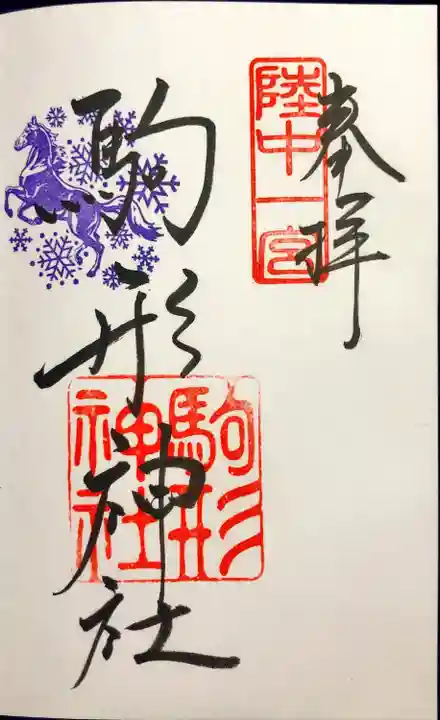 奉拝
陸中一宮
駒形神社
駒形
神社